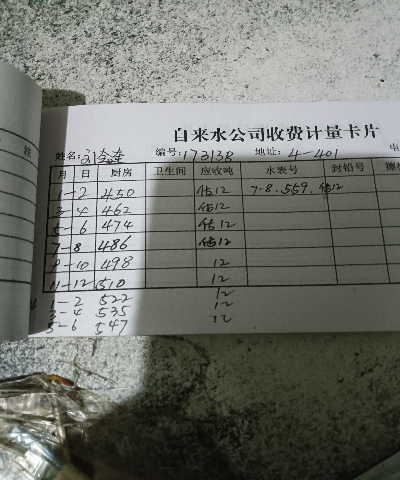 自来水公司收费计量卡片
注
姓名: 编号:17313B 地址: 4-401 电
月 日 厨房 卫生间 应收吨 水表号 封铅号
1-2 450 估12 7-8.559.估12
3-4 462 估12
5-6 474 估12
7-8 486 估12
9-10 498 12
11-12 510 12
1-2 522 12
3-4 535 12
5-6 547 12